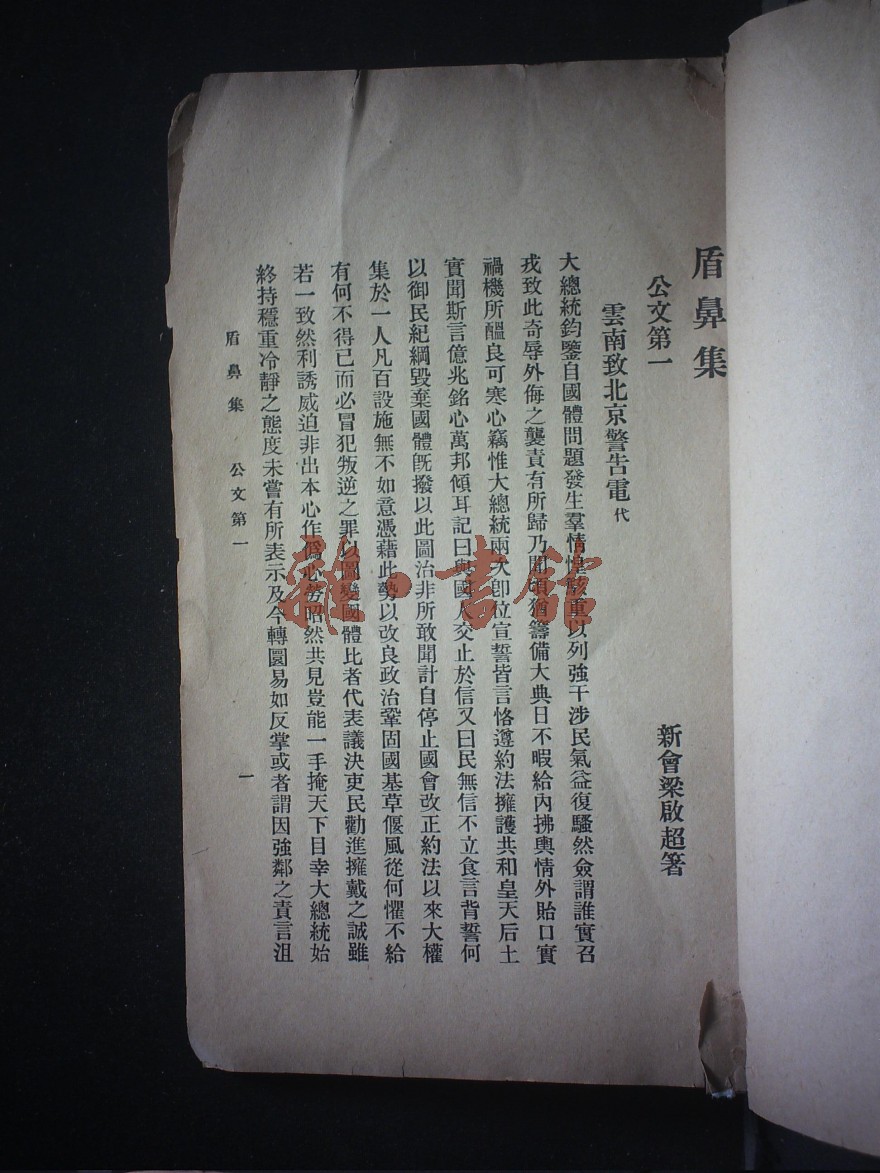 盾鼻集
新會梁啟超箸
公文第一
雲南致北京警告電 代
大總統鈞鑒自國體問題發生羣情惶駭重以列強干涉民氣益復騷然僉謂誰實召
戎致此奇辱外侮之襲責有所歸乃聞頃猶籌備大典日不暇給內拂輿情外貽口實
禍機所醞良可寒心竊惟大總統兩次卽位宣誓皆言恪遵約法擁護共和皇天后土
實聞斯言億兆銘心萬邦傾耳記曰與國人交止於信又曰民無信不立食言背誓何
以御民紀綱毀棄國體旣撥以此圖治非所敢聞計自停止國會改正約法以來大權
集於一人凡百設施無不如意憑藉此勢以改良政治鞏固國基草偃風從何懼不給
有何不得已而必冒犯叛逆之罪以圖變國體比者代表議決吏民勸進擁戴之誠雖
若一致然利誘威迫非出本心作僞心勞昭然共見豈能一手掩天下目幸大總統始
終持穩重冷靜之態度未嘗有所表示及今轉圜易如反掌或者謂因強鄰之責言沮
盾鼻集 公文第一 一
雜·書館